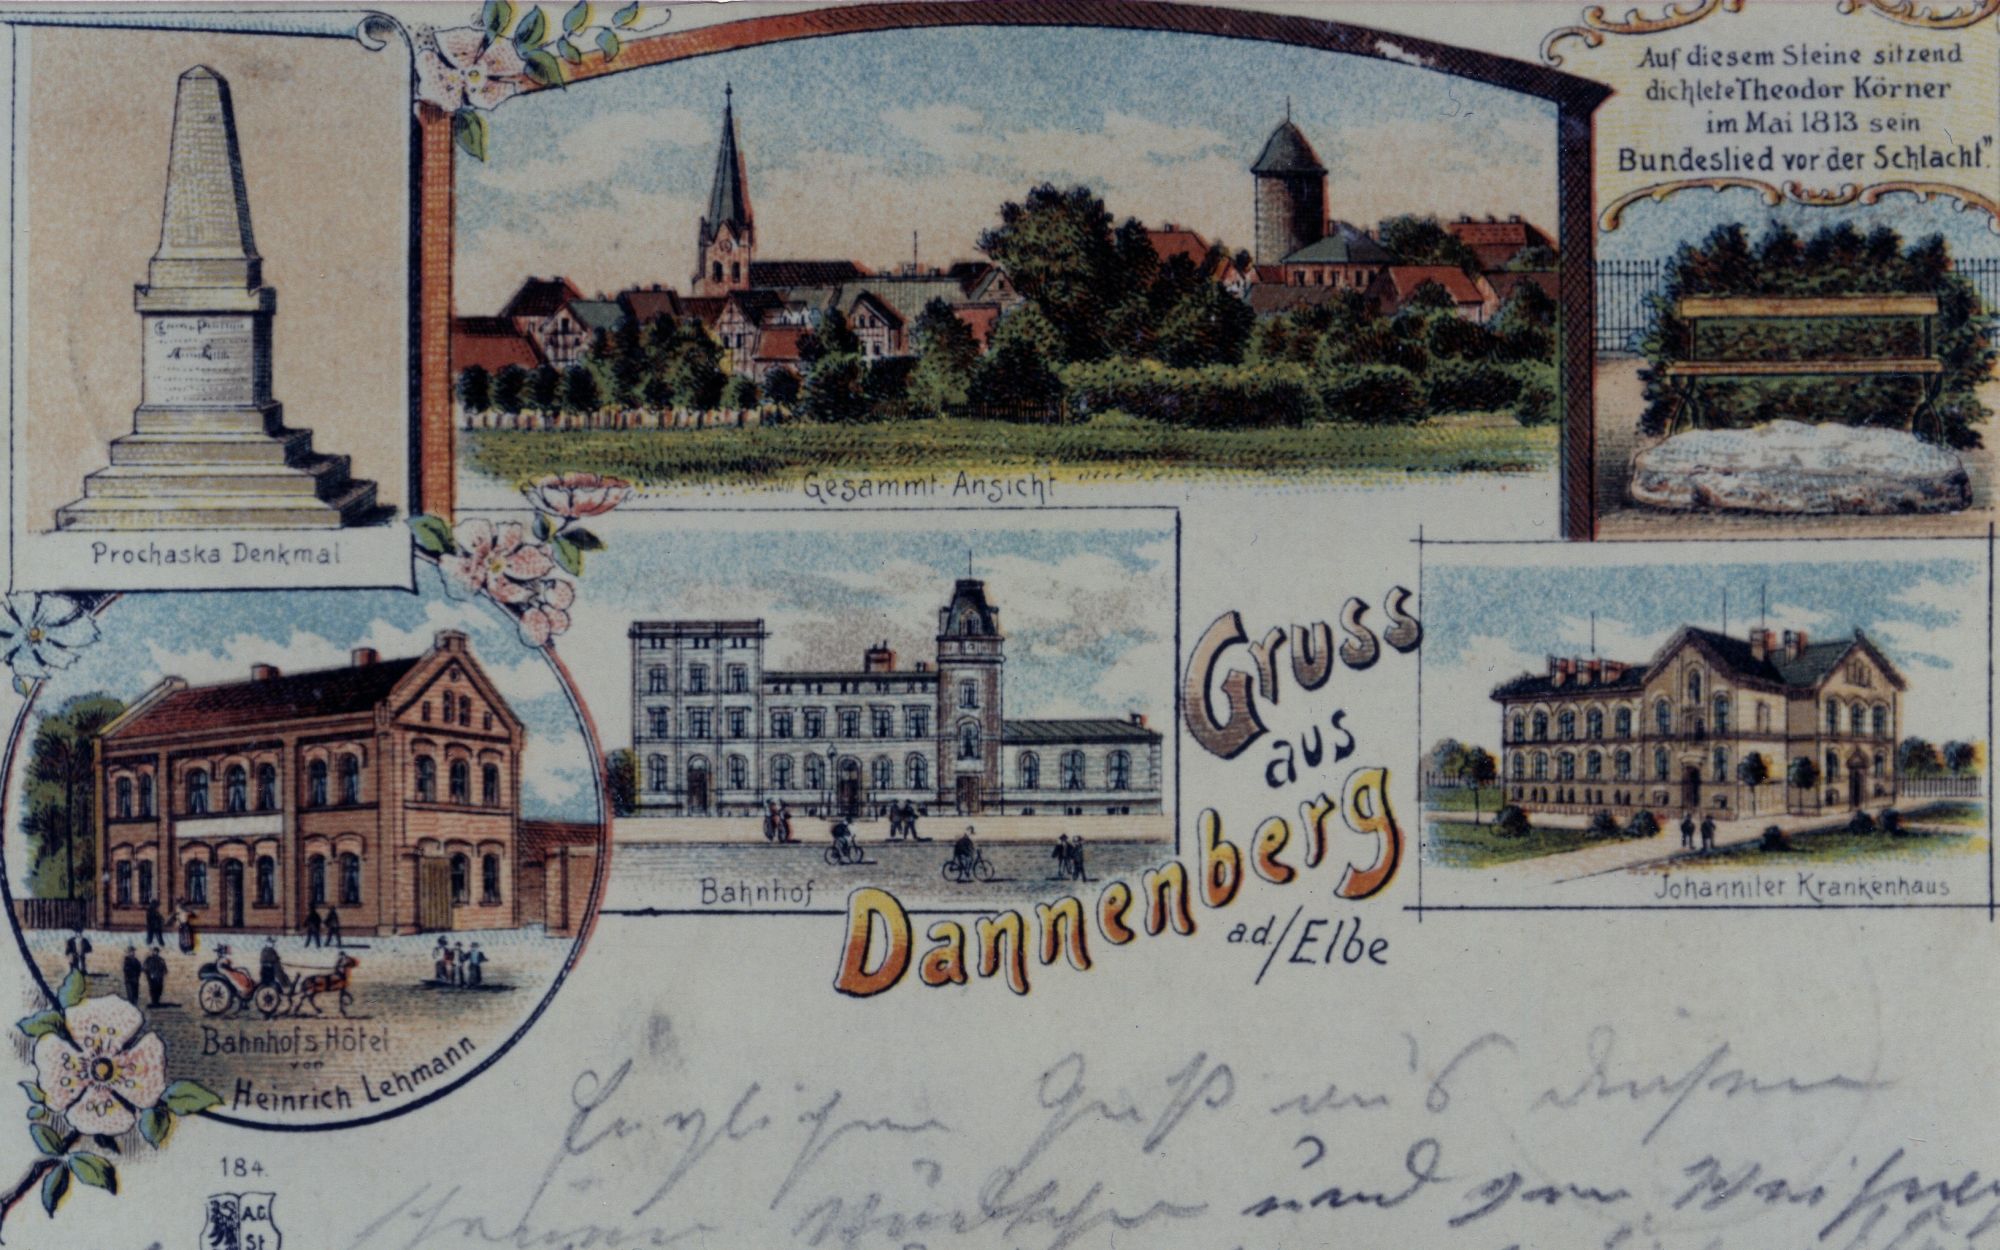 Auf diesem Steine sitzend
dichtete Theodor Körner
im Mai 1813 sein
Bundeslied vor der Schlacht."
Prochaska Denkmal
Gesammt-Ansicht
Bahnhof
Gruss
aus
Dannenberg
a.d./Elbe
Johanniter Krankenhaus
Bahnhofs Hôtel
von
Heinrich Lehmann
184.
A.C.
St
Herzlichen Gruß aus diesem
schönen Städtchen und